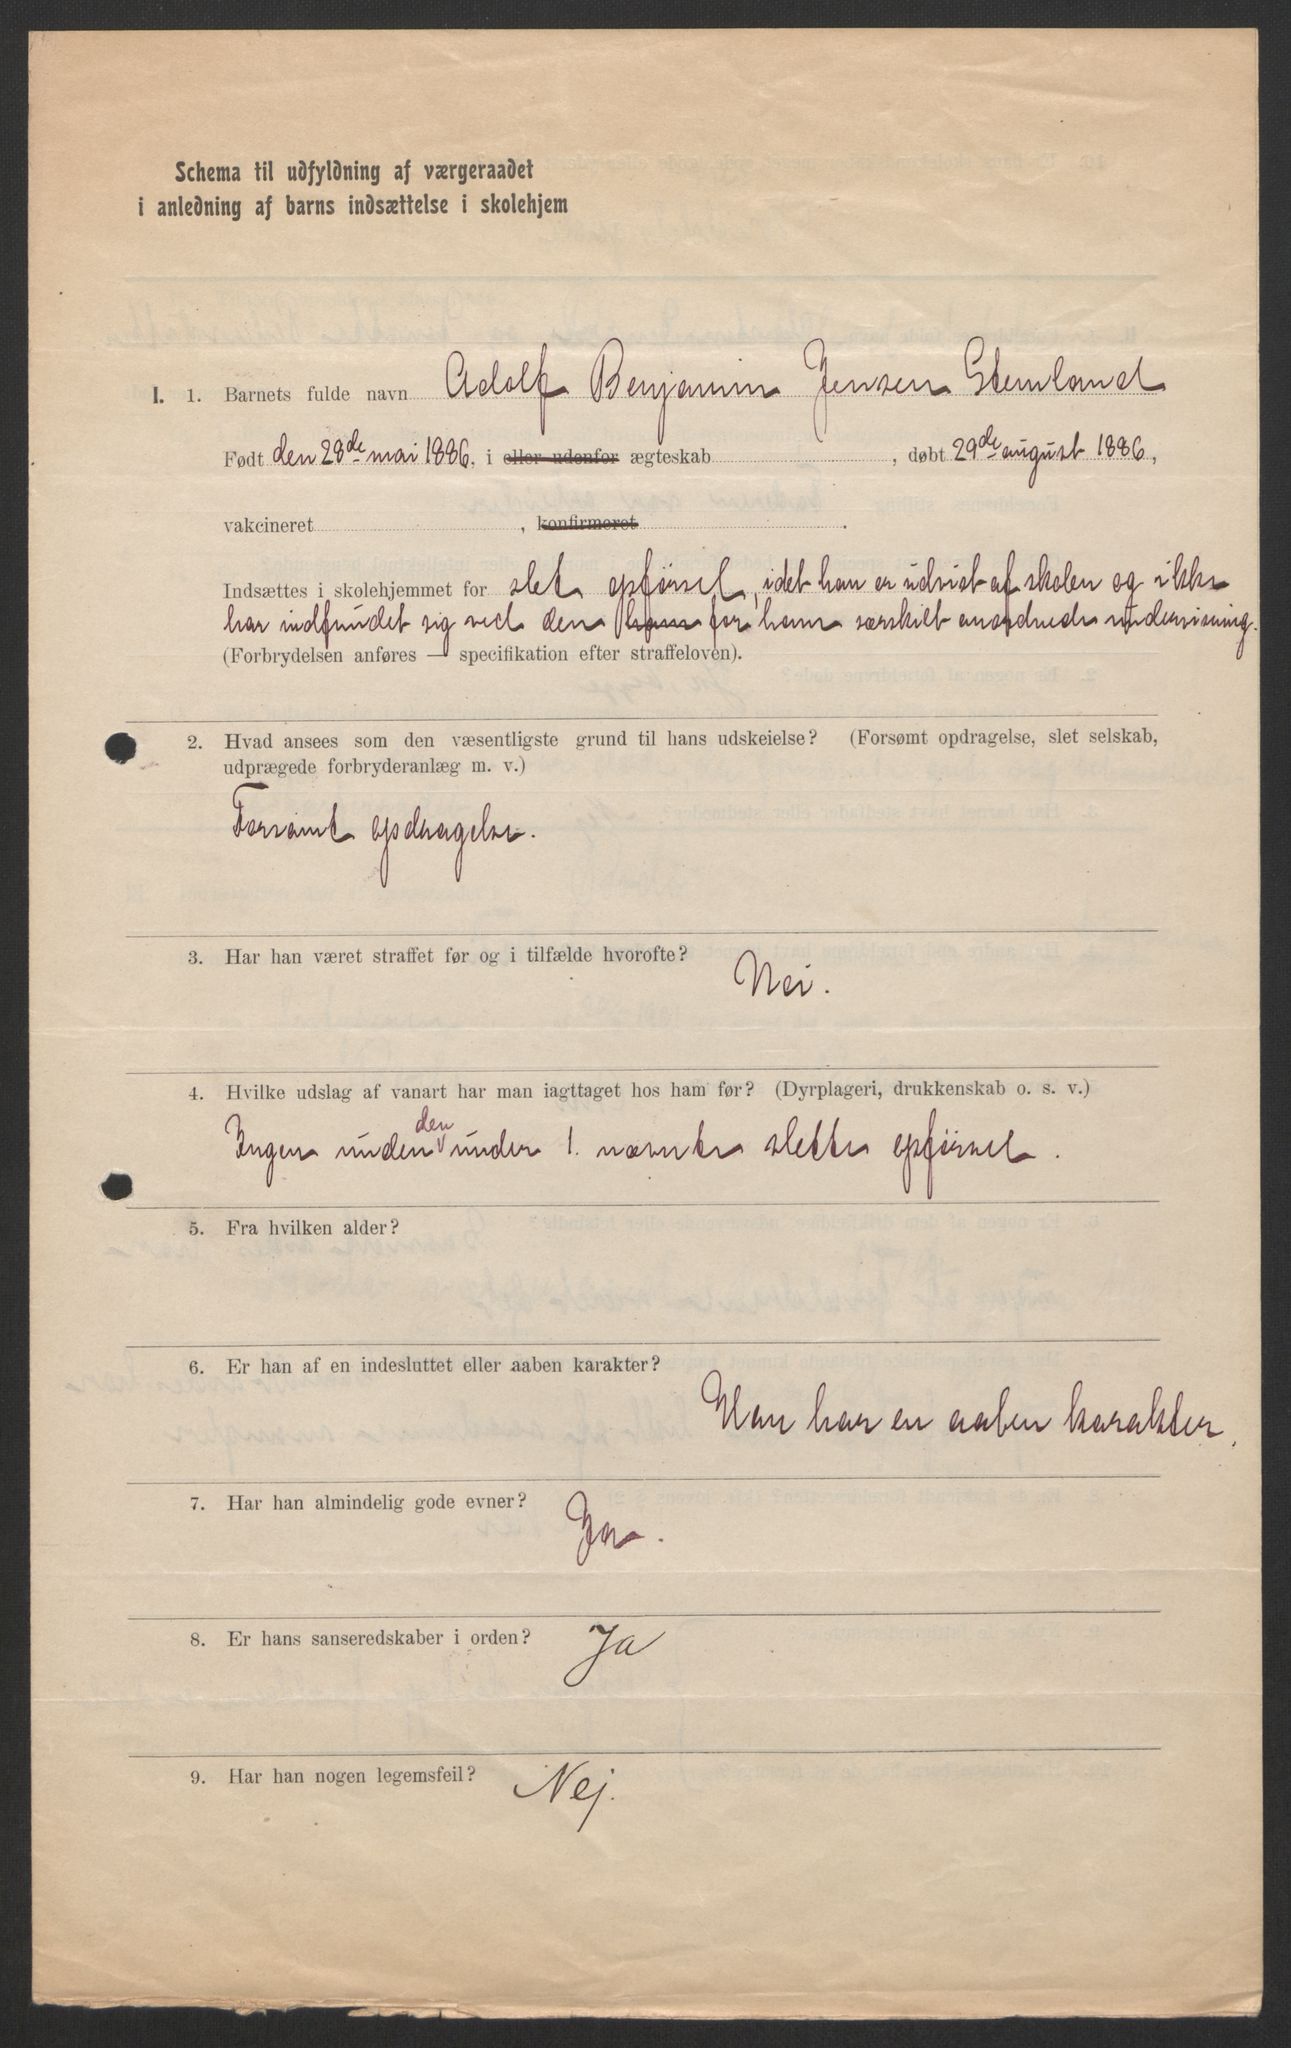 Schema til udfyldning af værgeraadet
i anledning af barns indsættelse i skolehjem
I. 1. Barnets fulde navn Adolf Benjamin Jensen Stemland
Født den 28de mai 1886, i eller udenfor ægteskab , døbt 29de august 1886,
vakcineret , konfirmeret .
Indsættes i skolehjemmet for slet opførsel, idet han er udvist af skolen og ikke
har indfundet sig ved den ham for ham særskilt anordnede undervisning.
(Forbrydelsen anføres — specifikation efter straffeloven).
2. Hvad ansees som den væsentligste grund til hans udskeielse? (Forsømt opdragelse, slet selskab,
udprægede forbryderanlæg m. v.)
Forsømt opdragelse.
3. Har han været straffet før og i tilfælde hvorofte?
Nei.
4. Hvilke udslag af vanart har man iagttaget hos ham før? (Dyrplageri, drukkenskab o. s. v.)
Ingen uden den under 1. nævnte slette opførsel.
5. Fra hvilken alder?
6. Er han af en indesluttet eller aaben karakter?
Han har en aaben karakter.
7. Har han almindelig gode evner?
Ja.
8. Er hans sanseredskaber i orden? Ja
9. Har han nogen legemsfeil? Nej.